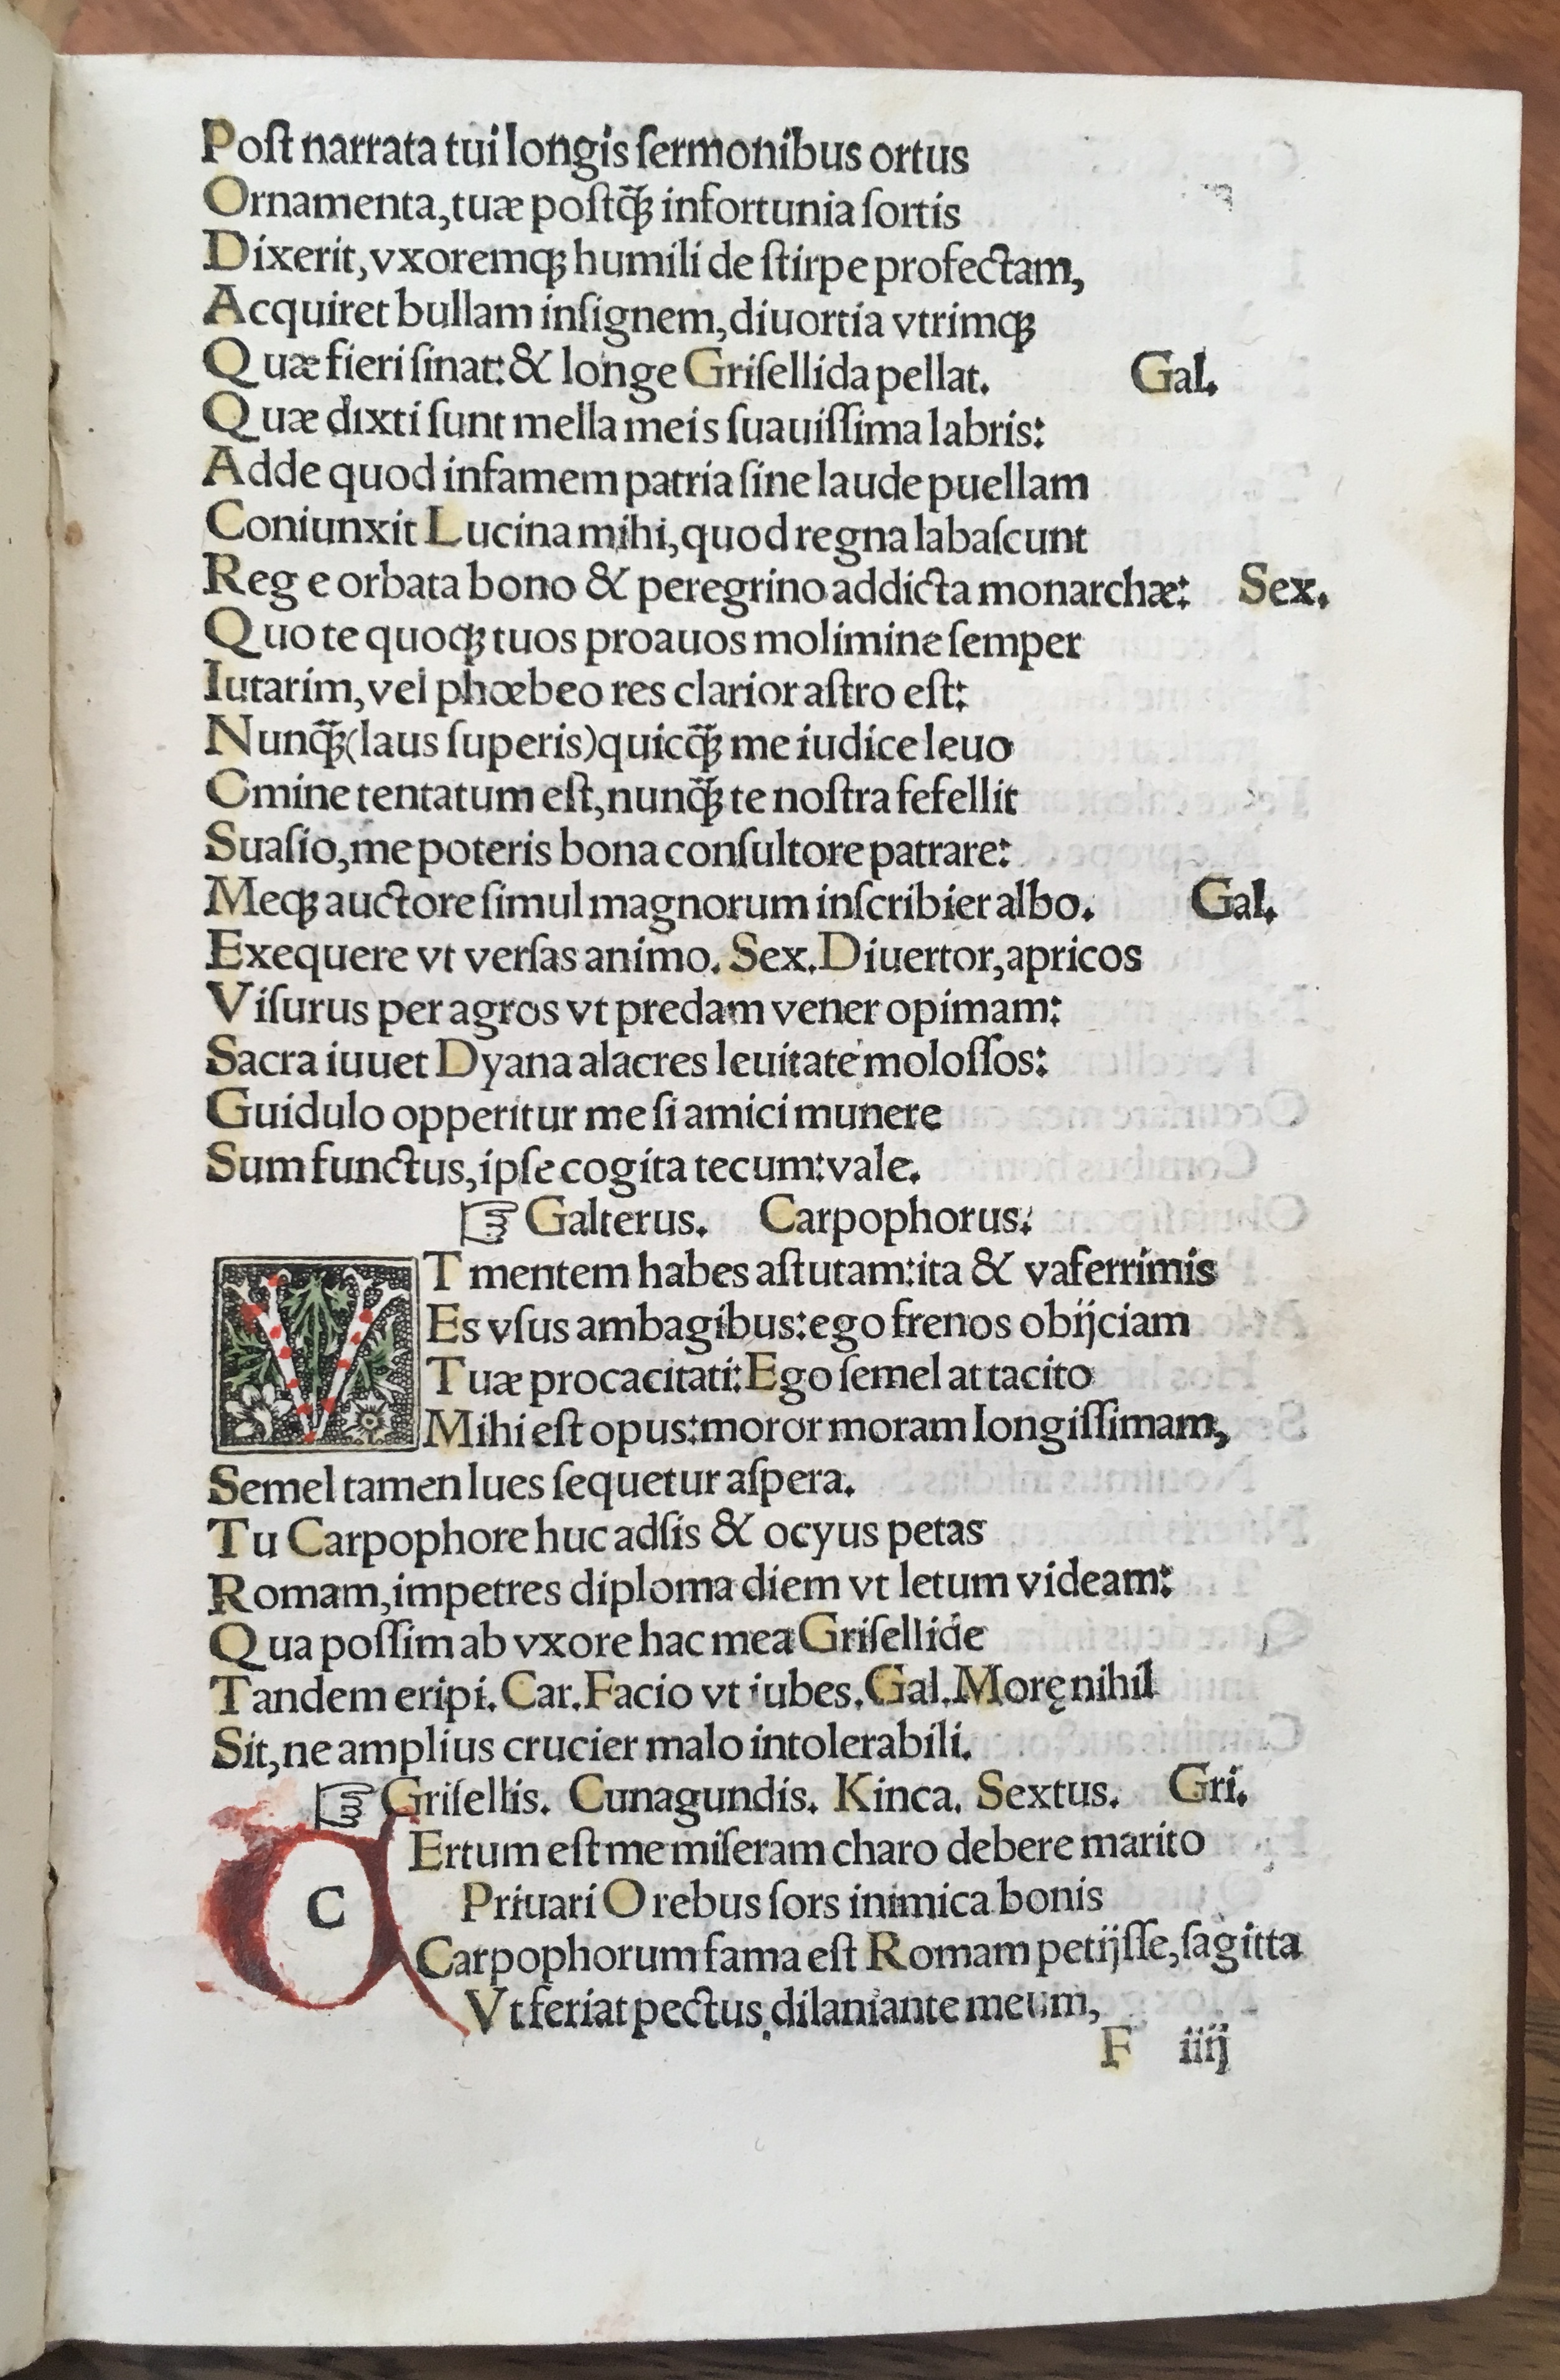 Poſt narrata tui longis ſermonibus ortus
Ornamenta,tuæ poſtq̃ꝫ infortunia ſortis
Dixerit,vxoremqꝫ humili de ſtirpe profectam,
Acquiret bullam inſignem,diuortia vtrimqꝫ
Quæ fieri ſinat:& longe Griſellida pellat. Gal.
Quæ dixti ſunt mella meis ſuauiſſima labris:
Adde quod infamem patria ſine laude puellam
Coniunxit Lucina mihi,quod regna labaſcunt
Rege orbata bono & peregrino addicta monarchæ: Sex.
Quo te quoqꝫ tuos proauos molimine ſemper
Iutarim,vel phœbeo res clarior aſtro eſt:
Nunq̃ꝫ(laus ſuperis)quicq̃ꝫ me iudice leuo
Omine tentatum eſt,nunq̃ꝫ te noſtra fefellit
Suaſio,me poteris bona conſultore patrare:
Meqꝫ auctore ſimul magnorum inſcribier albo. Gal.
Exequere vt verſas animo. Sex.Diuertor,apricos
Viſurus per agros vt predam vener opimam:
Sacra iuuet Dyana alacres leuitate moloſſos:
Guidulo opperitur me ſi amici munere
Sum functus,ipſe cogita tecum:vale.
☞ Galterus. Carpophorus.
VT mentem habes aſtutam:ita & vaferrimis
Es vſus ambagibus:ego frenos obijciam
Tuæ procacitati:Ego ſemel at tacito
Mihi eſt opus:moror moram longiſſimam,
Semel tamen lues ſequetur aſpera.
Tu Carpophore huc adſis & ocyus petas
Romam,impetres diploma diem vt letum videam:
Qua poſſim ab vxore hac mea Griſellide
Tandem eripi. Car.Facio vt iubes.Gal.Morę nihil
Sit,ne amplius crucier malo intolerabili.
☞ Griſellis. Cunagundis. Kinca. Sextus. Gri.
CErtum eſt me miſeram charo debere marito
Priuari O rebus ſors inimica bonis
Carpophorum fama eſt Romam petijſſe,ſagitta
Vt feriat pectus dilaniante meum,
F iiij